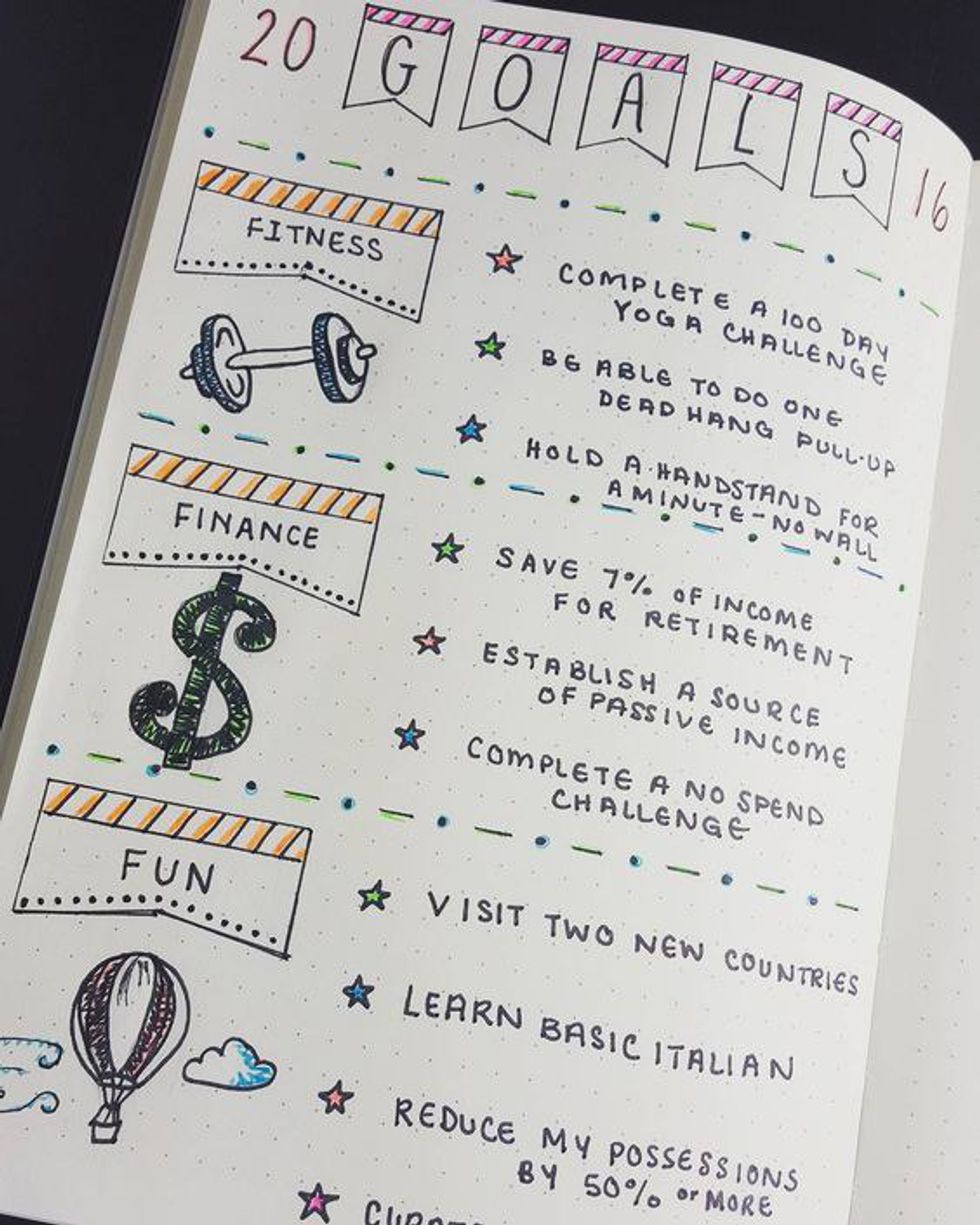 20 GOALS 16
FITNESS
COMPLETE A 100 DAY
YOGA CHALLENGE
BE ABLE TO DO ONE
DEAD HANG PULL-UP
HOLD A HANDSTAND FOR
A MINUTE - NO WALL
FINANCE
SAVE 7% OF INCOME
FOR RETIREMENT
ESTABLISH A SOURCE
OF PASSIVE INCOME
COMPLETE A NO SPEND
CHALLENGE
FUN
VISIT TWO NEW COUNTRIES
LEARN BASIC ITALIAN
REDUCE MY POSSESSIONS
BY 50% or MORE